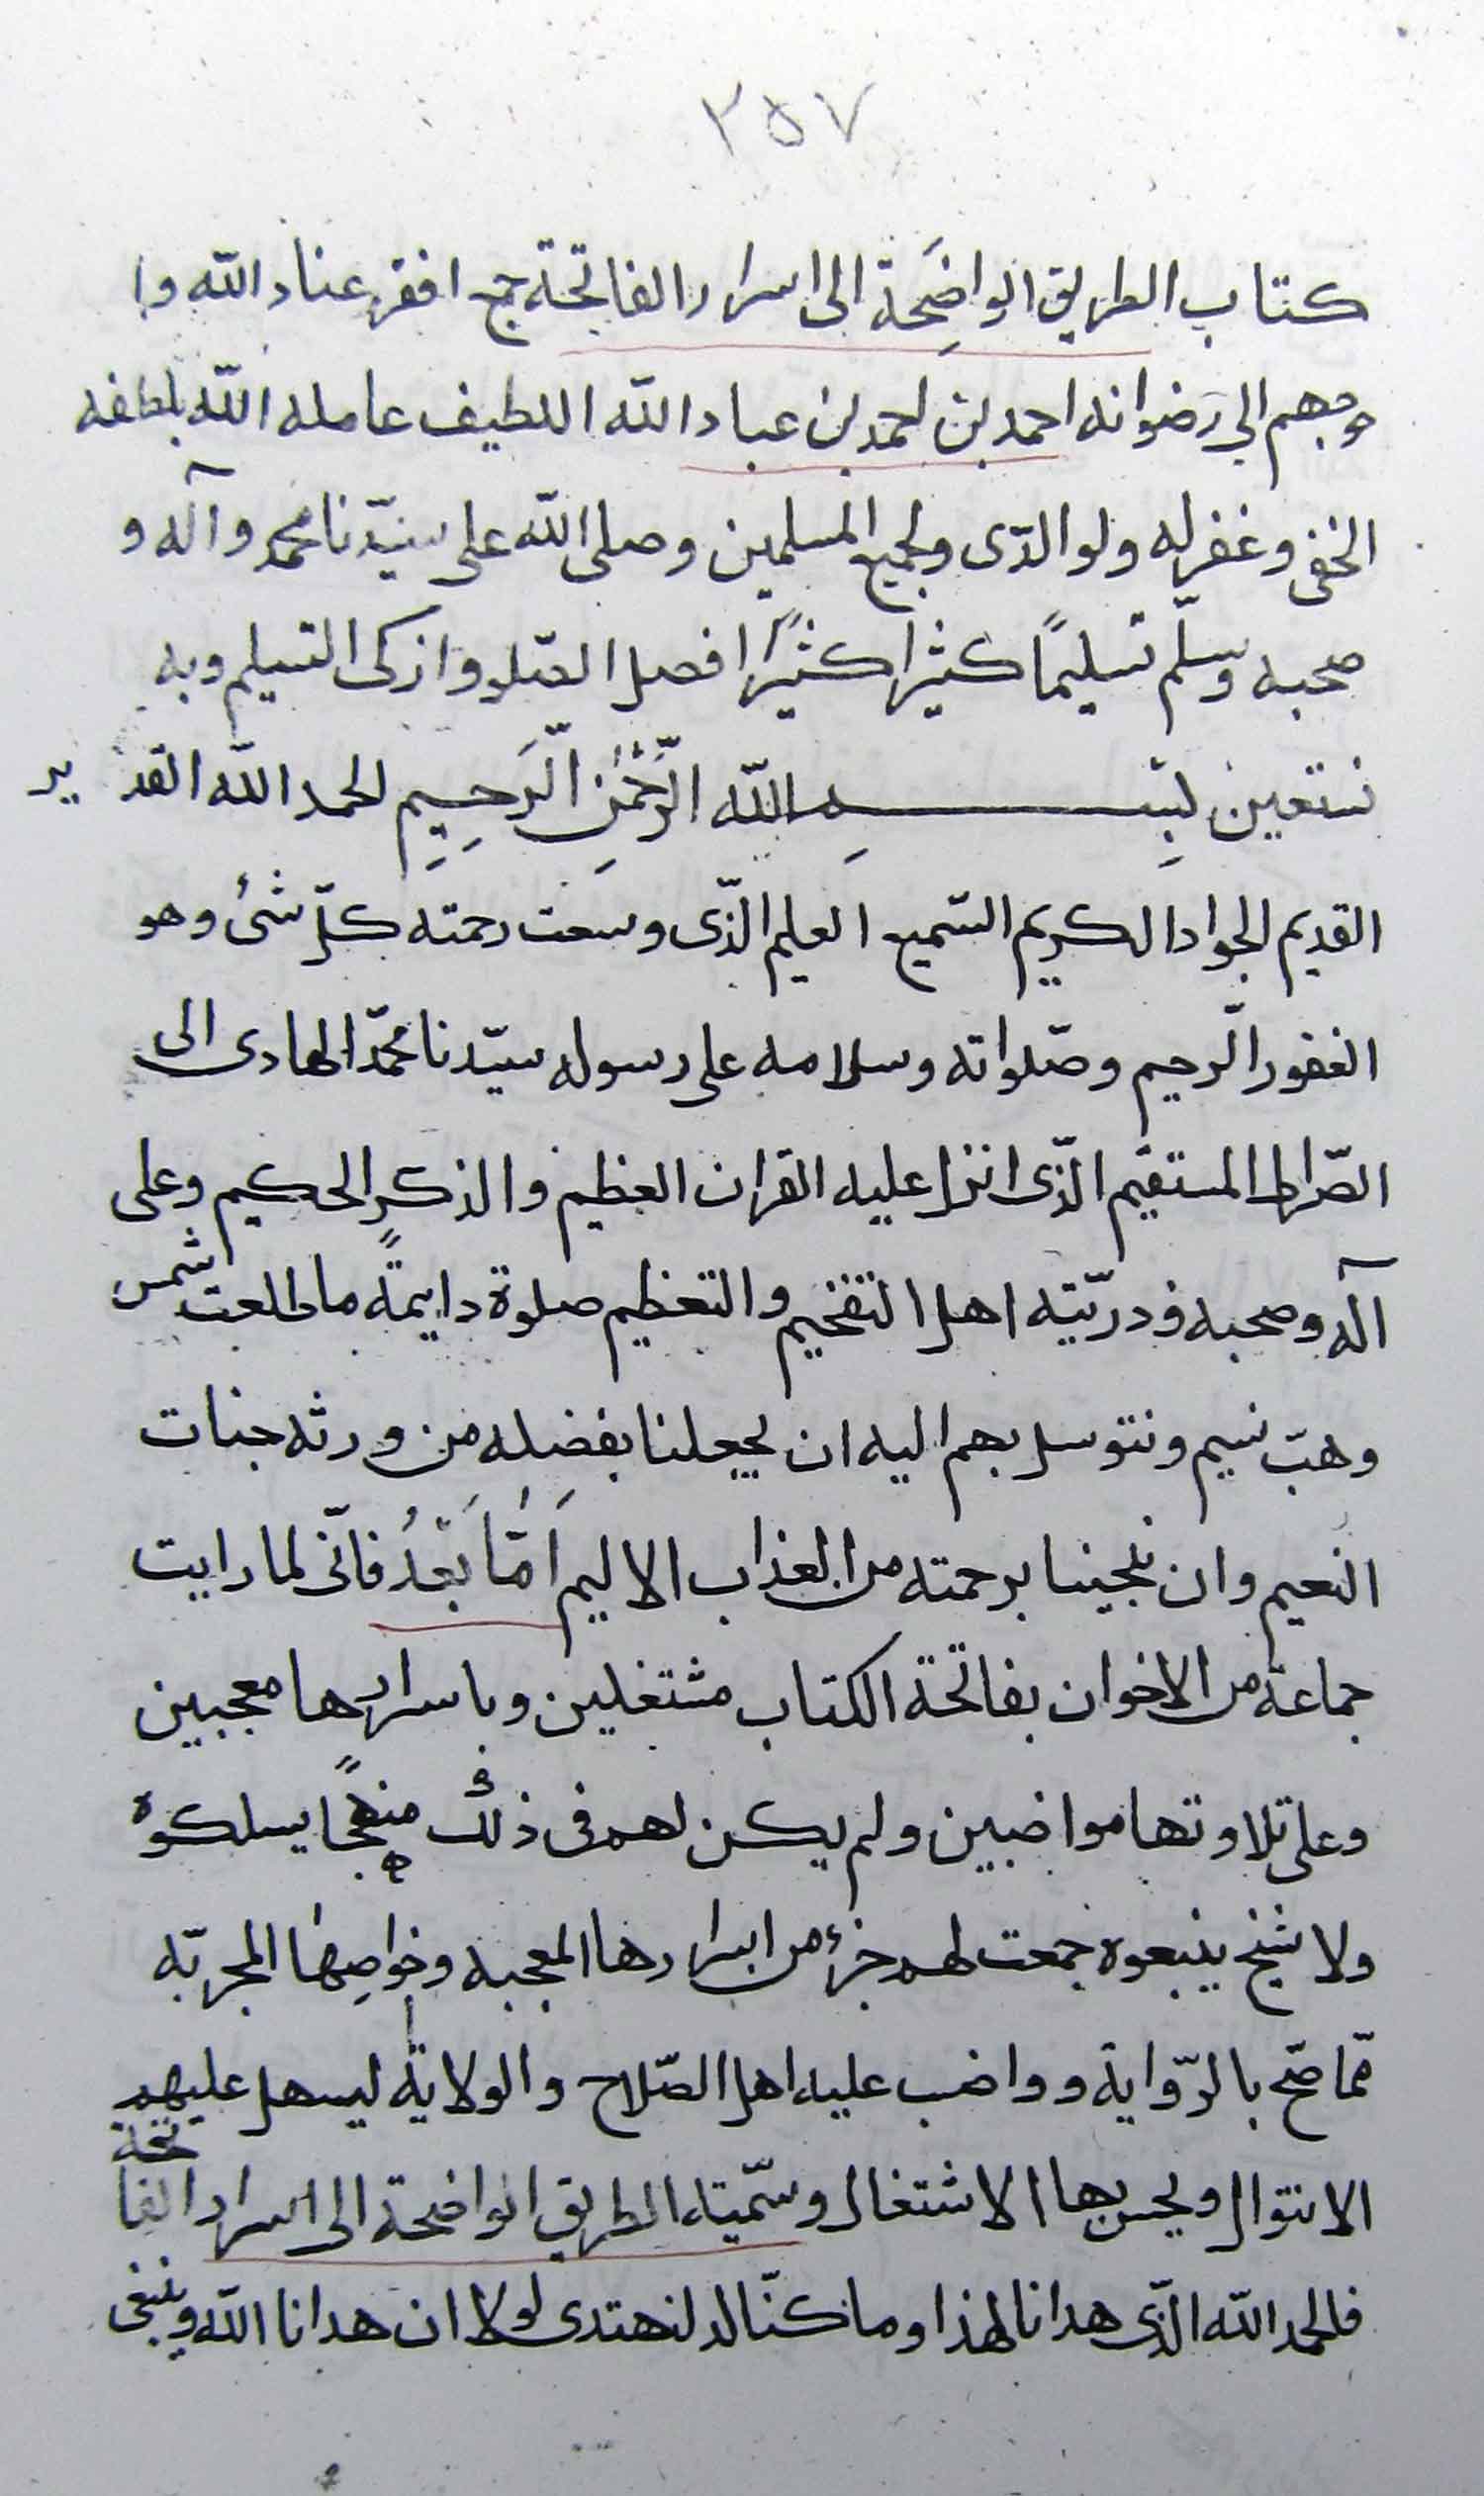 ٣٥٧
كتاب الطريق الواضحة الى اسرار الفاتحة جمع افقر عناد الله وا
وجهم الى رضوانه احمد بن احمد بن عباد الله اللطيف عامله الله بلطفه
الخفى وغفر له ولوالدّى ولجميع المسلمين وصلى الله على سيّدنا محمد وآله و
صحبه وسلّم تسليمًا كثيرا كثيرًا افصل الصّلو وازكى التسيلم وبه
نستعين بِسْمِ الله الرَّحْمٰنِ الَّرَحِيِمِ الحمد الله القدير
القديم الجواد الكريم السّميع العليم الذّى وسعت رحمته كلّ شئ وهو
الغفور الّرحيم وصّلواته وسلامه على رسوله سيّدنا محمّد الهادى الى
الصّراط المستقيم الذّى انزل عليه القران العظيم والذكر الحكيم وعلى
آله وصحبه وذريّته اهل التفخيم والتعظيم صلوة دايمةً ما طلعت شمس
وهبّ نسيم ونتوسل بهم اليه ان يجعلنا بفضله من ورثه جنات
النعيم وان ينجينا برحمته من العذاب الاليم اَمَّا بَعْدُ فانّى لما رايت
جماعة من الاخوان بفاتحة الكتاب مشتغلين وباسرارها معجبين
وعلى تلاوتها مواضبين ولم يكن لهم فى ذلك منهجًا يسلكوه
ولا شيخ يتبعوه جمعت لهم جزء من اسرارها المعجبه وخواصها المجربّه
ممّا صّح بالرّواية وواضب عليه اهل الصّلاح والولاية ليسهل عليهم
الانتوال ويحسن بها الاشتغال وسمّيتاه الطريق الواضحة الى اسرار الفاتحة
فالحمد الله الذّى هدانا لهذا وما كنّا لنهتدى لولا ان هدانا الله وينبغى